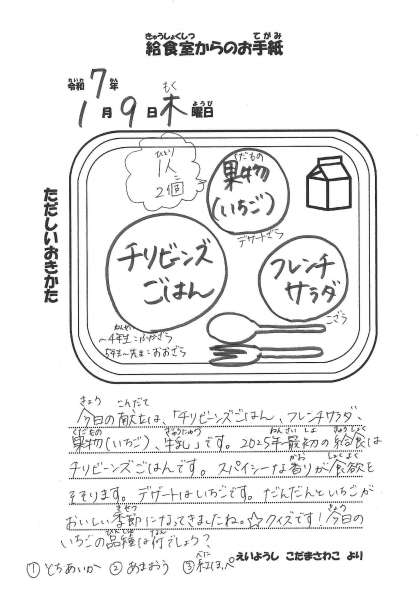 給食室からのお手紙
令和7年
1月9日木曜日
ただしいおきかた
1人
2個
果物
(いちご)
デザートざら
チリビーンズ
ごはん
フレンチ
サラダ
こざら
〜4年生:ふかざら
5年生〜先生:おおざら
今日の献立は、「チリビーンズごはん、フレンチサラダ、
果物(いちご)、牛乳」です。2025年最初の給食は
チリビーンズごはんです。スパイシーな香りが食欲を
そそります。デザートはいちごです。だんだんといちごが
おいしい季節になってきましたね。☆クイズです!今日の
いちごの品種は何でしょう?
えいようし こだまさわこ より
①とちあいか ②あまおう ③紅ほっぺ